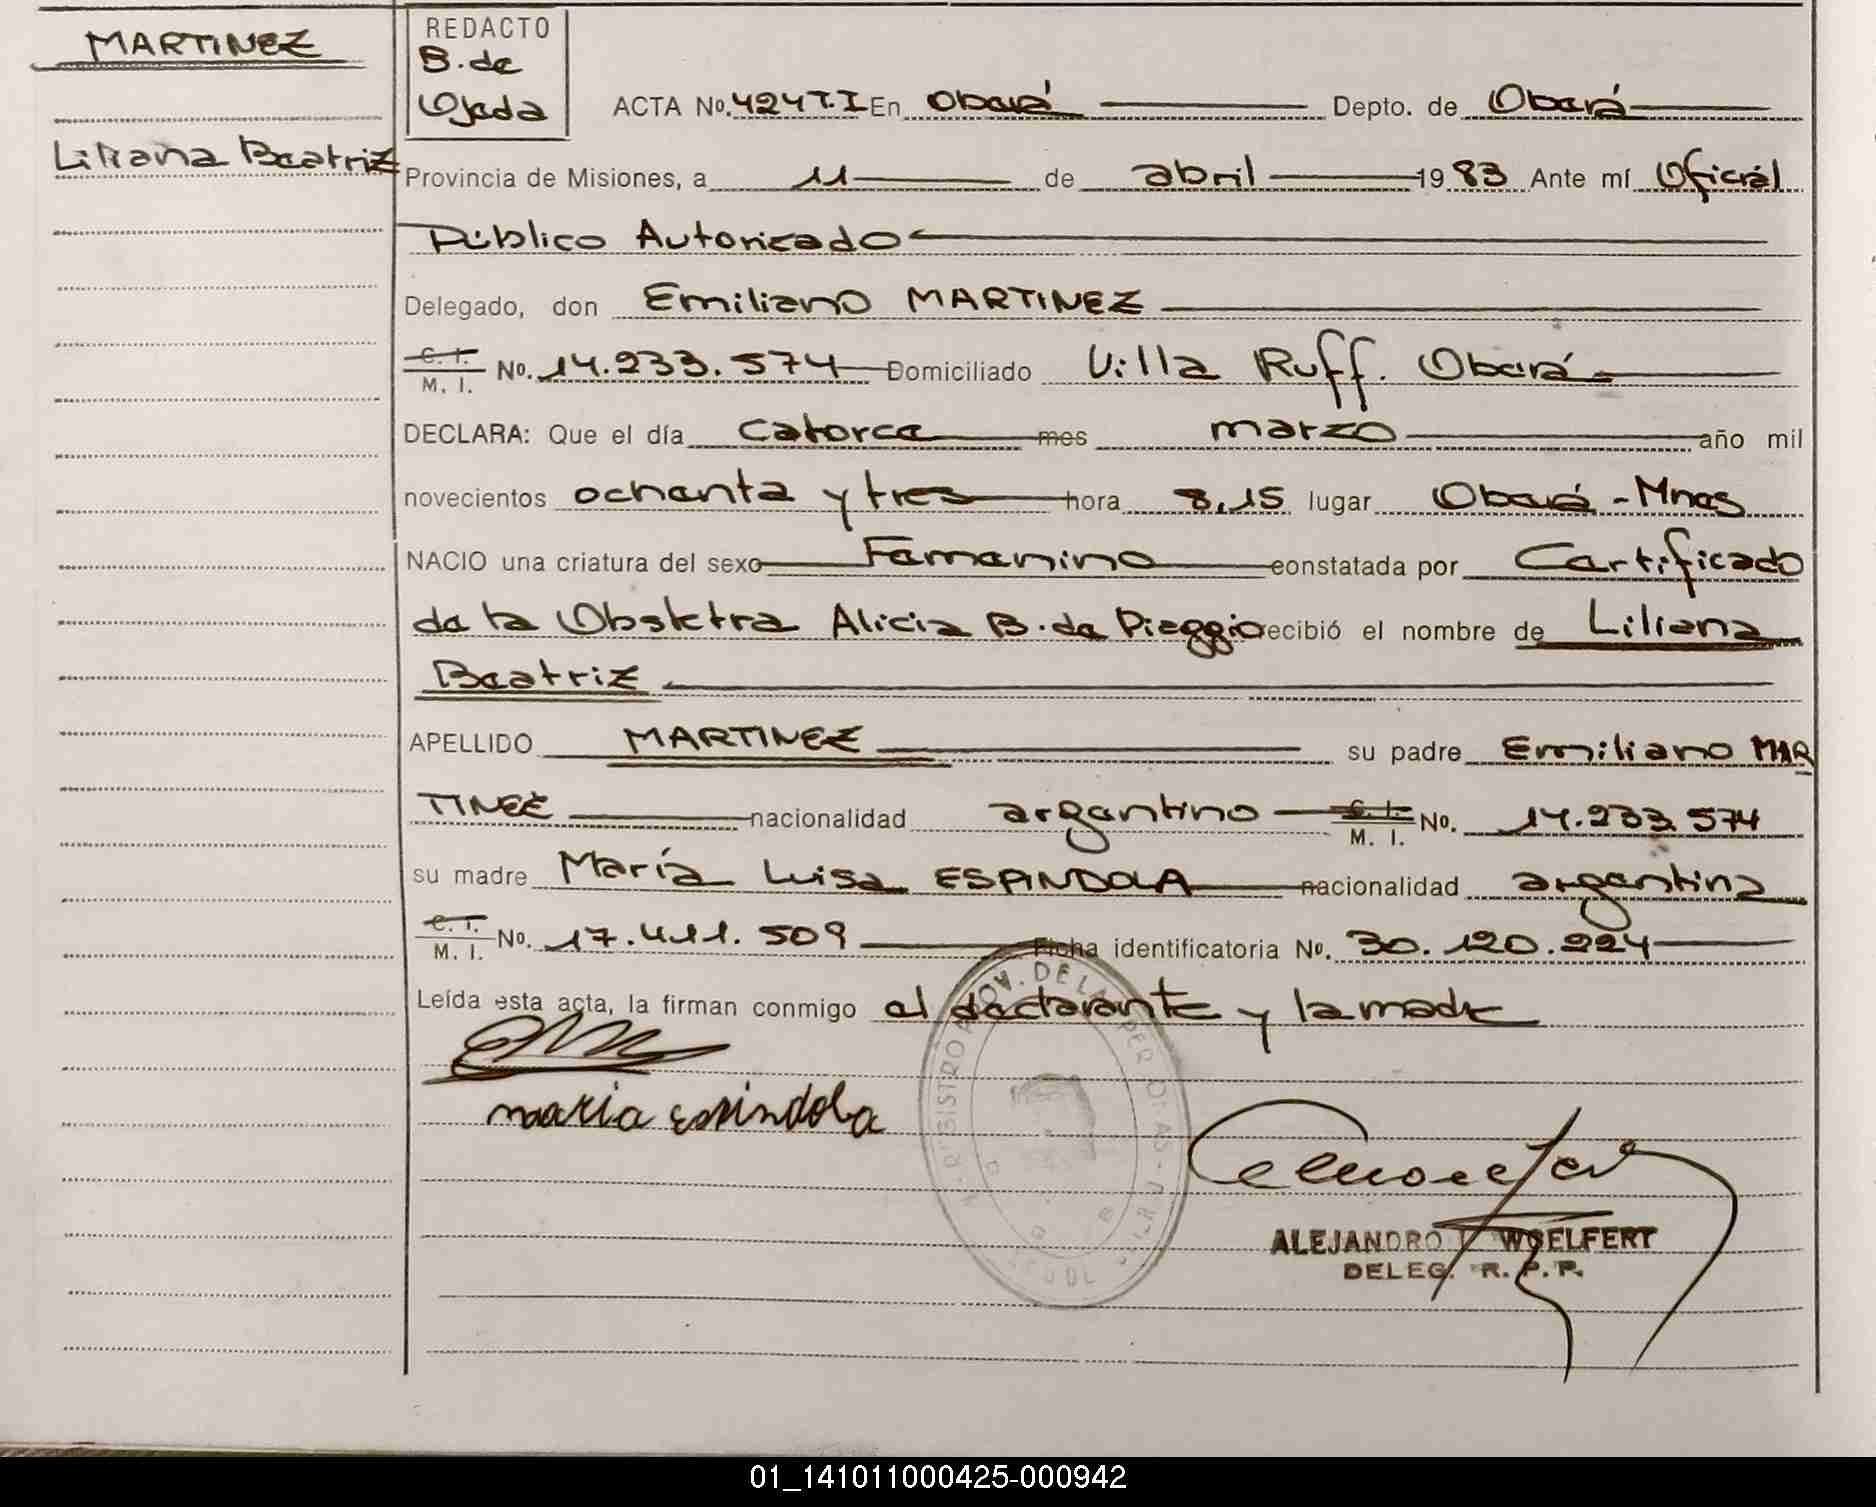 MARTINEZ
Liliana Beatriz
REDACTO
B. de
Ojeda
ACTA No. 424 T.I En Oberá Depto. de Oberá
Provincia de Misiones, a 11 de abril 1983 Ante mí Oficial
Público Autorizado
Delegado, don Emiliano MARTINEZ
C. I.
M. I. No. 14.233.574 Domiciliado Villa Ruff. Oberá
DECLARA: Que el día catorce mes marzo año mil
novecientos ochenta y tres hora 8,15 lugar Oberá - Mnes
NACIO una criatura del sexo Femenino constatada por Certificado
de la Obstetra Alicia B. de Pieggio recibió el nombre de Liliana
Beatriz
APELLIDO MARTINEZ su padre Emiliano MAR
TINEZ nacionalidad argentino C. I.
M. I. No. 14.233.574
su madre María Luisa ESPINDOLA nacionalidad argentina
C. I.
M. I. No. 17.411.509 Ficha identificatoria No. 30.120.224
Leída esta acta, la firman conmigo el declarante y la madre
maria espindola
REGISTRO PROV. DE LAS PERSONAS
ALEJANDRO WOELFERT
DELEG. R. P. P.
01_141011000425-000942